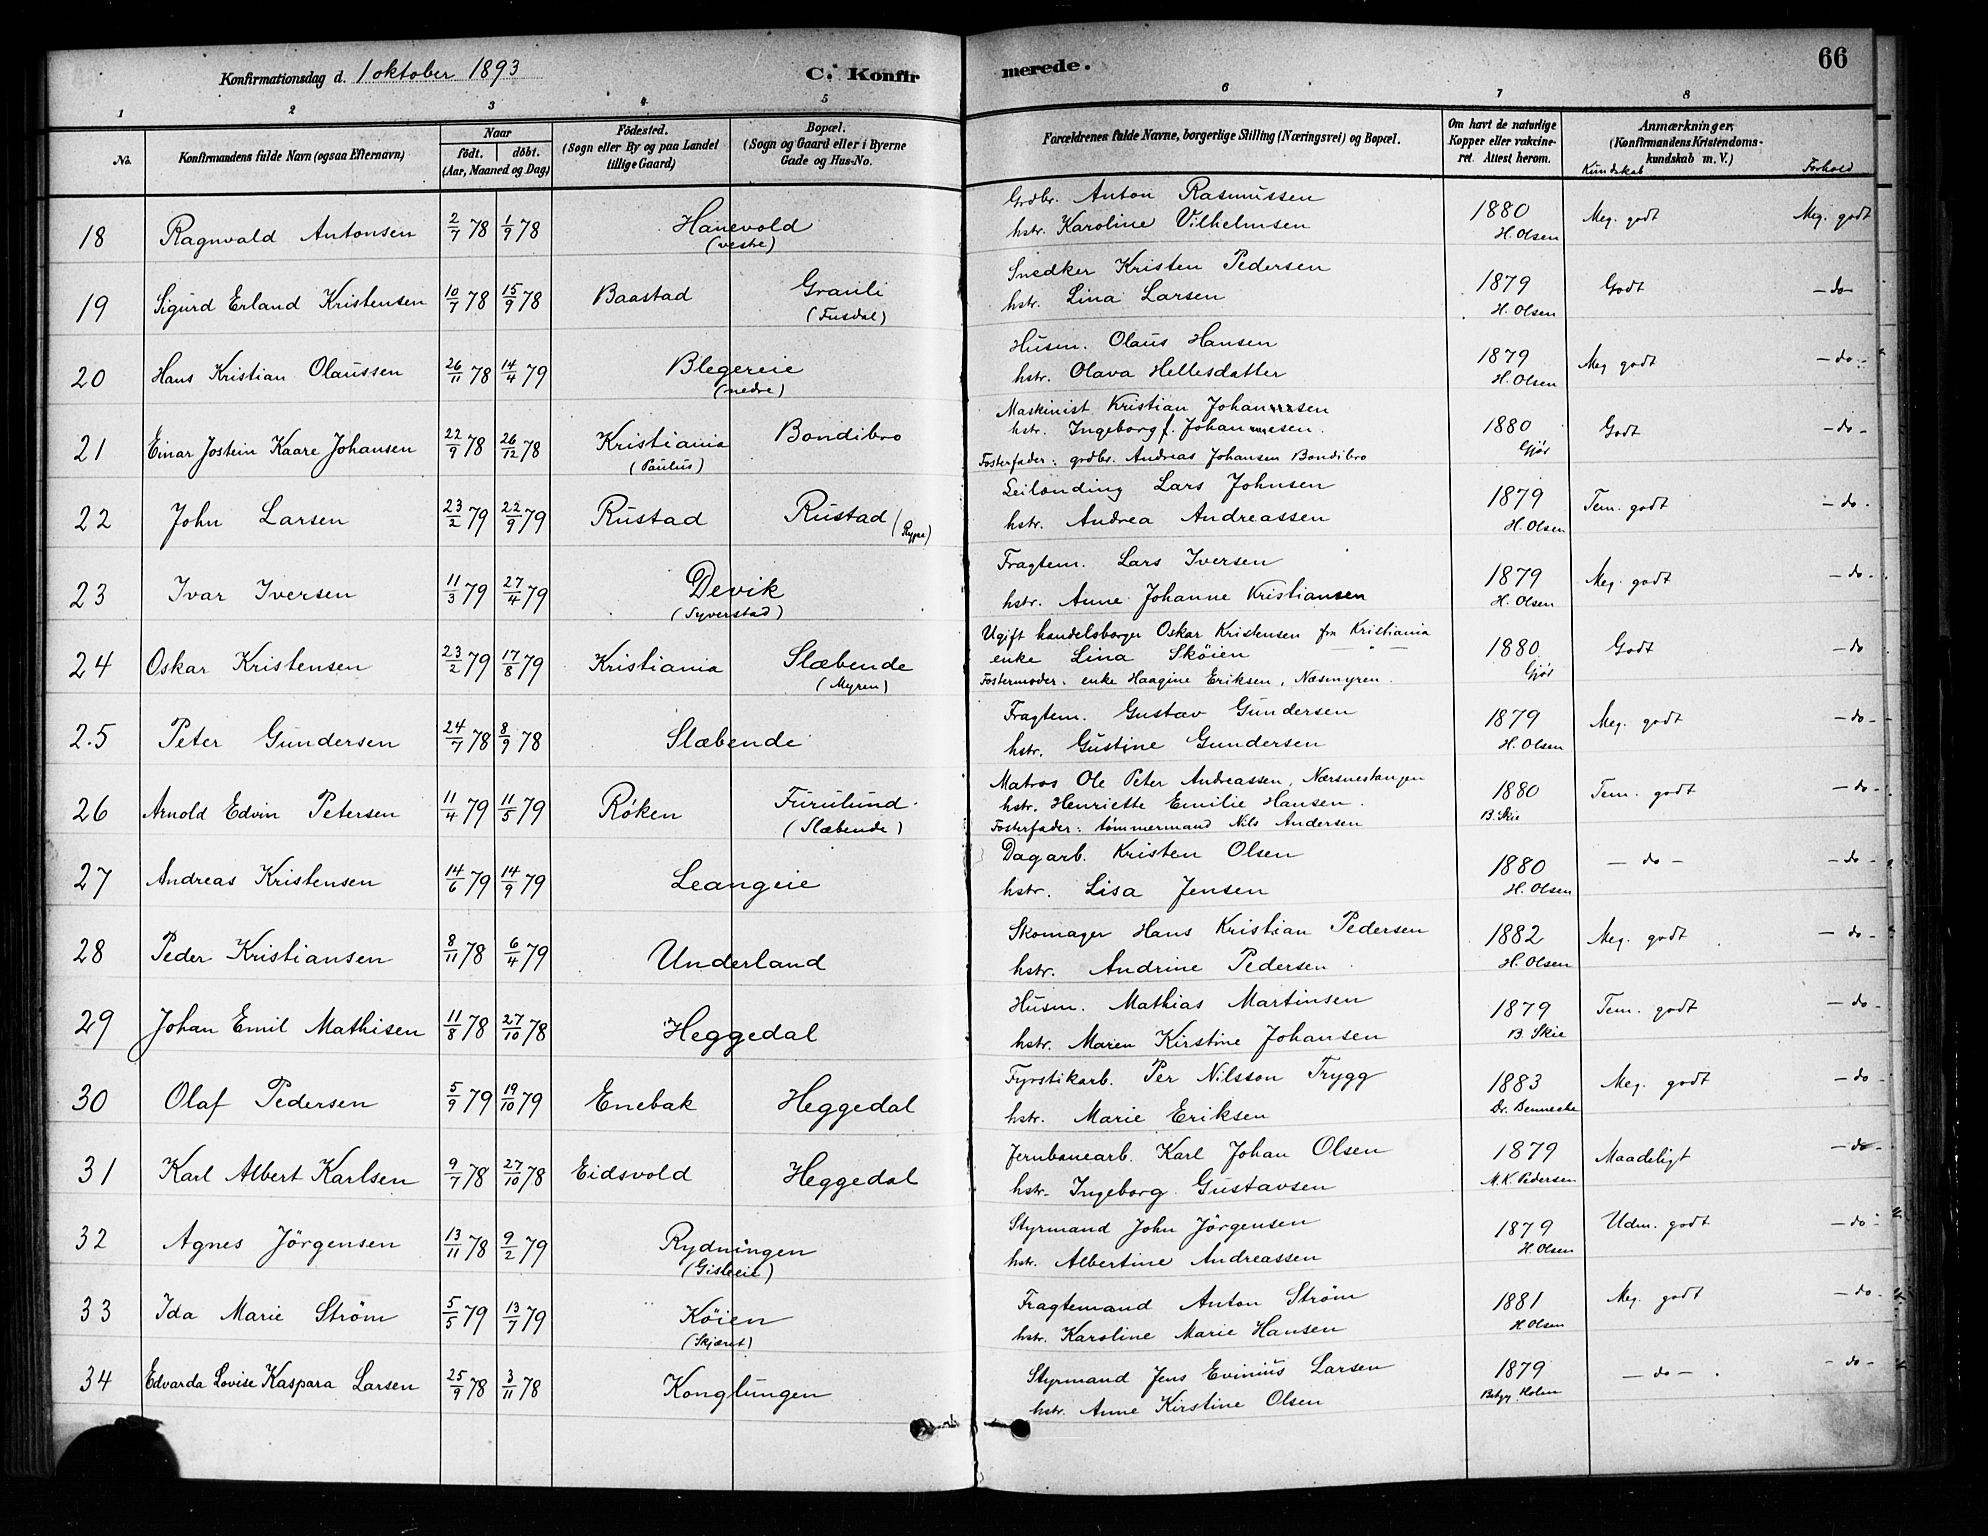 66
Konfirmationsdag d. 1 oktober 1893 C. Konfirmerede.
1 2 3 4 5 6 7 8
No. Konfirmandens fulde Navn (ogsaa Efternavn) Naar födt. döbt. (Aar, Maaned og Dag) Födested. (Sogn eller By og paa Landet tillige Gaard) Bopæl. (Sogn og Gaard eller i Byerne Gade og Hus-No. Forældrenes fulde Navne, borgerlige Stilling (Næringsvei) og Bopæl. Om havt de naturlige Kopper eller vaccineret. Attest herom. Anmærkninger. (Konfirmandens Kristendomskundskab m. V.) Kundskab Forhold
18 Ragnvald Antonsen 2/7 78 1/9 78 Hanevold (vestre) Grdbr. Anton Rasmussen 1880 Meg. godt Meg. godt
hstr. Karoline Vilhelmsen H. Olsen
19 Sigurd Erland Kristensen 10/7 78 15/9 78 Baastad Granli (Fusdal) Snedker Kristen Pedersen 1879 Godt - do -
hstr. Lina Larsen H. Olsen
20 Hans Kristian Olaussen 26/11 78 14/4 79 Blegereie (nedre) Husm. Olaus Hansen 1879 Meg godt - do -
hstr. Olava Hellesdatter H. Olsen
21 Einar Jostein Kaare Johansen 22/9 78 26/12 78 Kristiania (Paulus) Bondibro Maskinist Kristian Johannesen 1880 Godt - do -
hstr. Ingeborg f. Johannesen. Gjör
Fosterfader: grdbr. Andreas Johansen Bondibro
22 John Larsen 23/2 79 22/9 79 Rustad Rustad (Rypa) Leilending Lars Johnsen 1879 Tem. godt - do -
hstr. Andrea Andreassen H. Olsen
23 Ivar Iversen 11/3 79 27/4 79 Devik (Syverstad) Fragtem. Lars Iversen 1879 Meg. godt - do -
hstr. Anne Johanne Kristiansen H. Olsen
24 Oskar Kristensen 23/2 79 17/8 79 Kristiania Slæbende (Myren) Ugift handelsborger Oskar Kristensen fra Kristiania 1880 Godt - do
enke Lina Skøien - " - Gjör
Fostermoder: enke Haagine Eriksen, Næsmyren.
25 Peter Gundersen 24/7 78 8/9 78 Slæbende Fragtem. Gustav Gundersen 1879 Meg. godt - do -
hstr. Gustine Gundersen H. Olsen
26 Arnold Edvin Petersen 11/4 79 11/5 79 Røken Furulund. (Slæbende) Matros Ole Peter Andreassen, Nærsnestangen 1880 Tem. godt - do -
hstr. Henriette Emilie Hansen. B. Skie
Fosterfader: tømmermand Nils Andersen
27 Andreas Kristensen 14/6 79 14/9 79 Leangeie Dagarb. Kristen Olsen 1880 - do - - do -
hstr. Lisa Jensen H. Olsen
28 Peder Kristiansen 8/11 78 6/4 79 Underland Skomager Hans Kristian Pedersen 1882 Meg. godt - do -
hstr. Andrine Pedersen H. Olsen
29 Johan Emil Mathisen 11/8 78 27/10 78 Heggedal Husm. Mathias Martinsen 1879 Tem. godt - do -
hstr. Maren Kirstine Johansen B. Skie
30 Olaf Pedersen 5/9 79 19/10 79 Enebak Heggedal Fyrstikarb. Per Nilsson Trygg 1883 Meg. godt - do -
hstr. Marie Eriksen Dr. Bennecke
31 Karl Albert Karlsen 9/7 78 27/10 78 Eidsvold Heggedal Jernbanearb. Karl Johan Olsen 1879 Maadeligt - do -
hstr. Ingeborg Gustavsen M. K. Pedersen
32 Agnes Jörgensen 13/11 78 9/2 79 Rydningen (Gisleeie) Styrmand John Jörgensen 1879 Udm. godt - do -
hstr. Albertine Andreassen H. Olsen
33 Ida Marie Strøm 5/5 79 13/7 79 Køien (Skjæret) Fragtemand Anton Strøm 1881 Meg. godt - do -
hstr. Karoline Marie Hansen H Olsen
34 Edvarda Lovise Kaspara Larsen 25/9 78 3/11 78 Konglungen Styrmand Jens Evinius Larsen 1879 - do - - do -
hstr. Anne Kirstine Olsen Holm